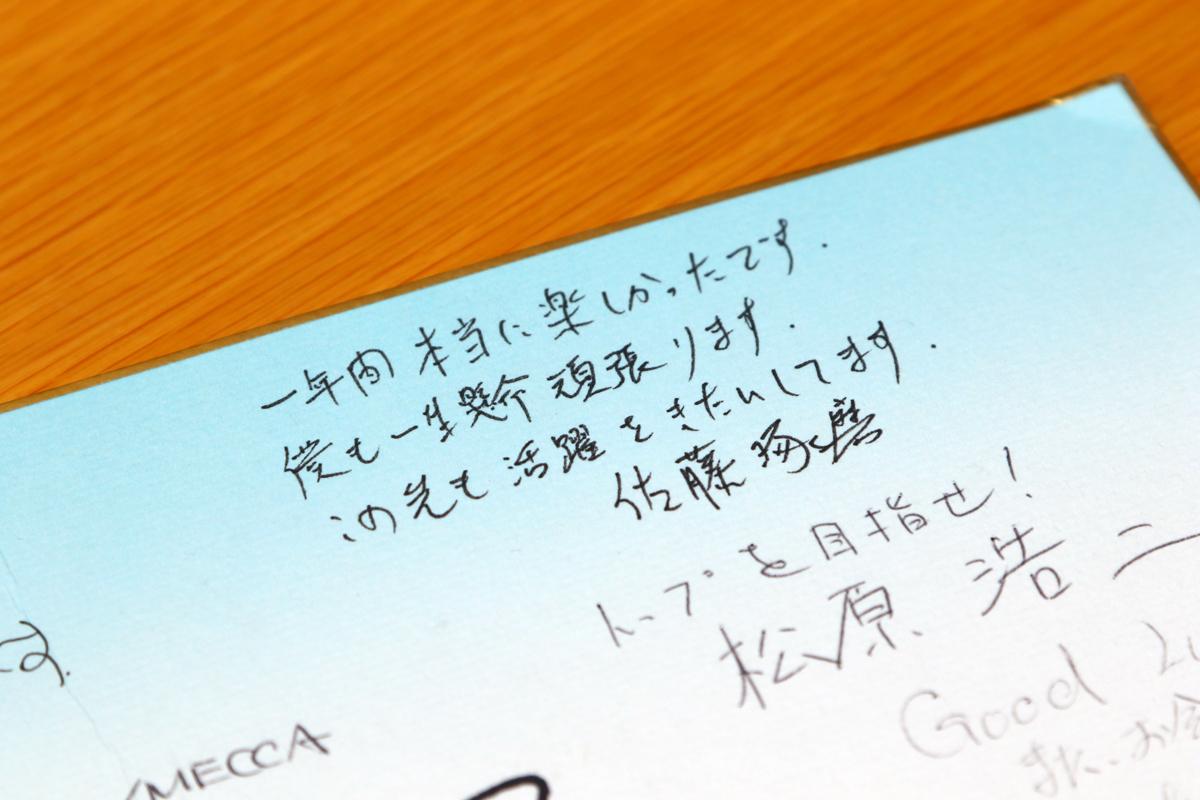 一年間 本当に楽しかったです.
僕も一生懸命 頑張ります.
この先も活躍をきたいしてます.
佐藤 琢磨
トップを目指せ!
松原 浩二
Good
また、お会
MECCA